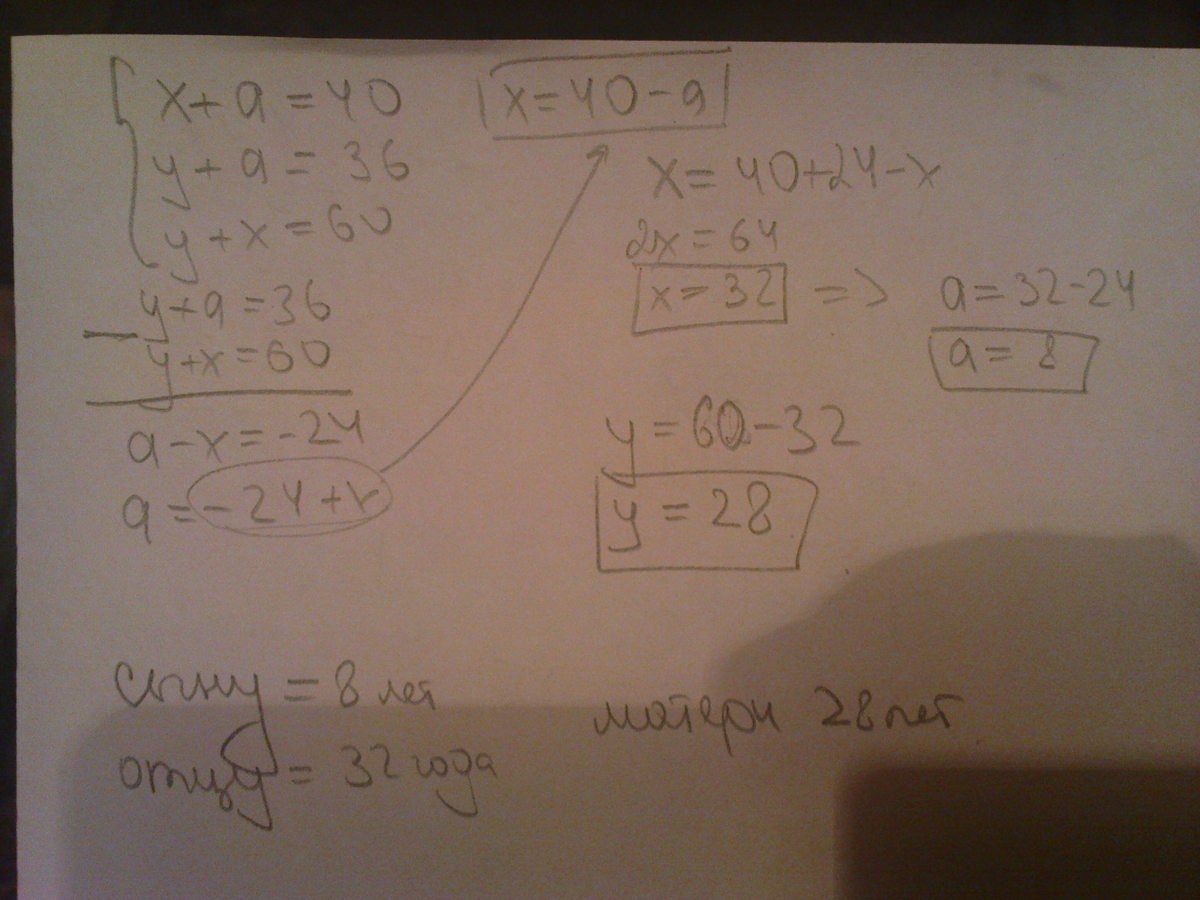 x + a = 40
y + a = 36
y + x = 60
y + a = 36
y + x = 60
a - x = -24
a = -24 + x
x = 40 - a
x = 40 + 24 - x
2x = 64
x = 32 => a = 32 - 24
a = 8
y = 60 - 32
y = 28
сыну = 8 лет
отцу = 32 года
матери 28 лет